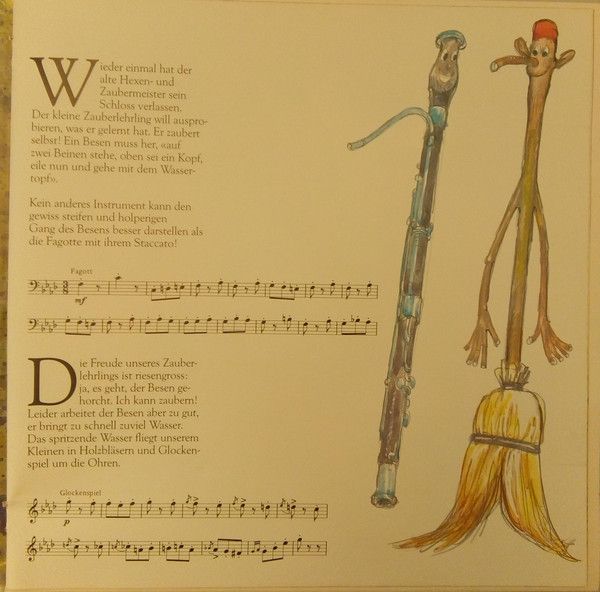 Wieder einmal hat der
alte Hexen- und
Zaubermeister sein
Schloss verlassen.
Der kleine Zauberlehrling will auspro-
bieren, was er gelernt hat. Er zaubert
selbst! Ein Besen muss her, «auf
zwei Beinen stehe, oben sei ein Kopf,
eile nun und gehe mit dem Wasser-
topf».
Kein anderes Instrument kann den
gewiss steifen und holpengen
Gang des Besens besser darstellen als
die Fagotte mit ihrem Staccato!
Fagott
mf
Die Freude unseres Zauber-
lehrlings ist riesengross:
ja, es geht, der Besen ge-
horcht. Ich kann zaubern!
Leider arbeitet der Besen aber zu gut,
er bringt zu schnell zuviel Wasser.
Das spritzende Wasser fliegt unserem
Kleinen in Holzbläsern und Glocken-
spiel um die Ohren.
Glockenspiel
p